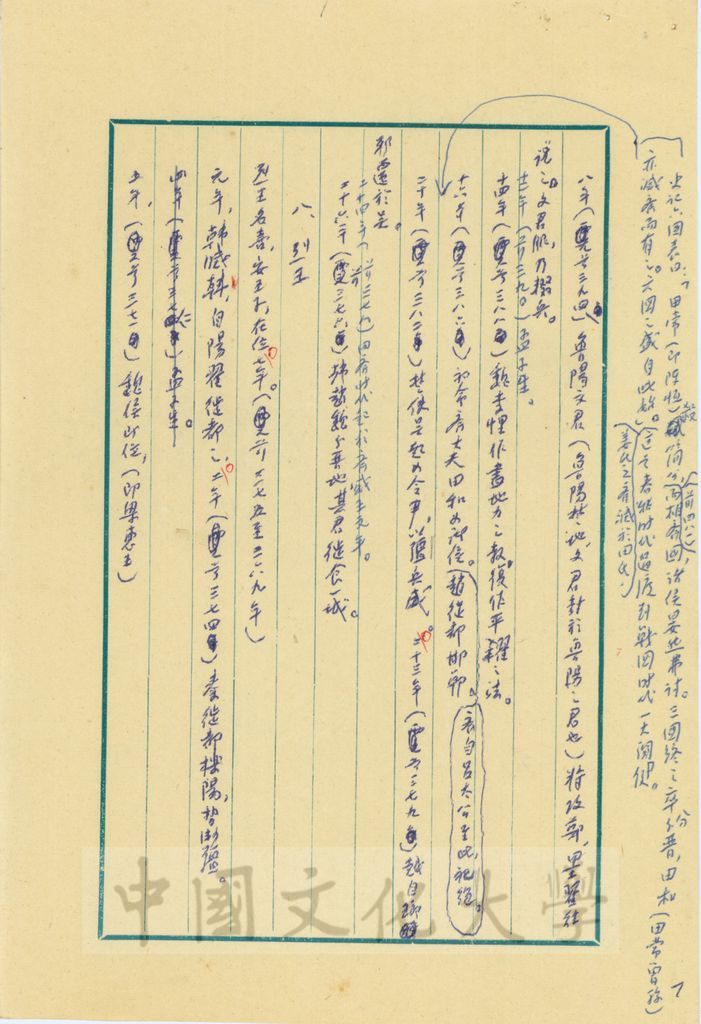 史記六國表曰:「田常(即陳恒)殺簡公而相齊國(前四八一),諸侯晏然弗討。三國終之卒分晉,田和(田常曾孫)
亦滅齊而有之。六國之盛自此始。」(這是春秋時代過渡到戰國時代一大關鍵。
姜氏之齊滅於田氏)
八年(前三九四),魯陽文君(魯陽楚地,文君封於魯陽之君也)將攻鄭,墨翟往
說之,文君服,乃輟兵。
十二年(前三九〇)孟子生。
十四年(前三八八)魏李悝作盡地力之教,復作平糴之法。
十六年(前三八六)初命齊大夫田和為諸侯。趙徙都邯鄲。齊自呂太公至此祀絕。
二十年(前三八二)楚使吳起為令尹,以強兵威。二十三年(前三七九)越自瑯
邪遷於吳。
二十四年(前三七八)田齊時代起於齊威王元年。
二十六年(前三七六)韓趙魏分晉地,其君徙食一城。
八、烈王
烈王名喜,安王子,在位七年。(前三七五至三六九年)
元年,韓滅鄭,自陽翟徙都之,二年(前三七四)秦徙都櫟陽,勢漸強。
四年(前三七二)孟子生。
五年,(前三七一)魏侯即位,(即梁惠王)
中國文化大學